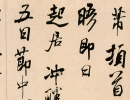 黻頓首
晤即日
起居冲勝
五日節中